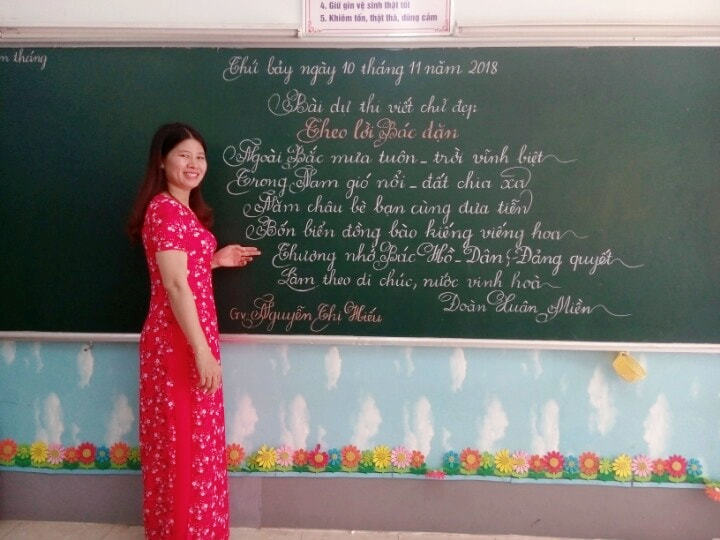 4. Giữ gìn vệ sinh thật tốt
5. Khiêm tốn, thật thà, dũng cảm
m tháng
Thứ bảy ngày 10 tháng 11 năm 2018
Bài dự thi viết chữ đẹp
Theo lời Bác dặn
Ngoài Bắc mưa tuôn - trời vĩnh biệt
Trong Nam gió nổi - đất chia xa
Năm châu bè bạn cùng đưa tiễn
Bốn biển đồng bào kiếng viếng hoa
Thương nhớ Bác Hồ - Dân, Đảng quyết
Làm theo di chúc, nước vinh hoà
Đoàn Xuân Miền
GV Nguyễn Thị Hiếu